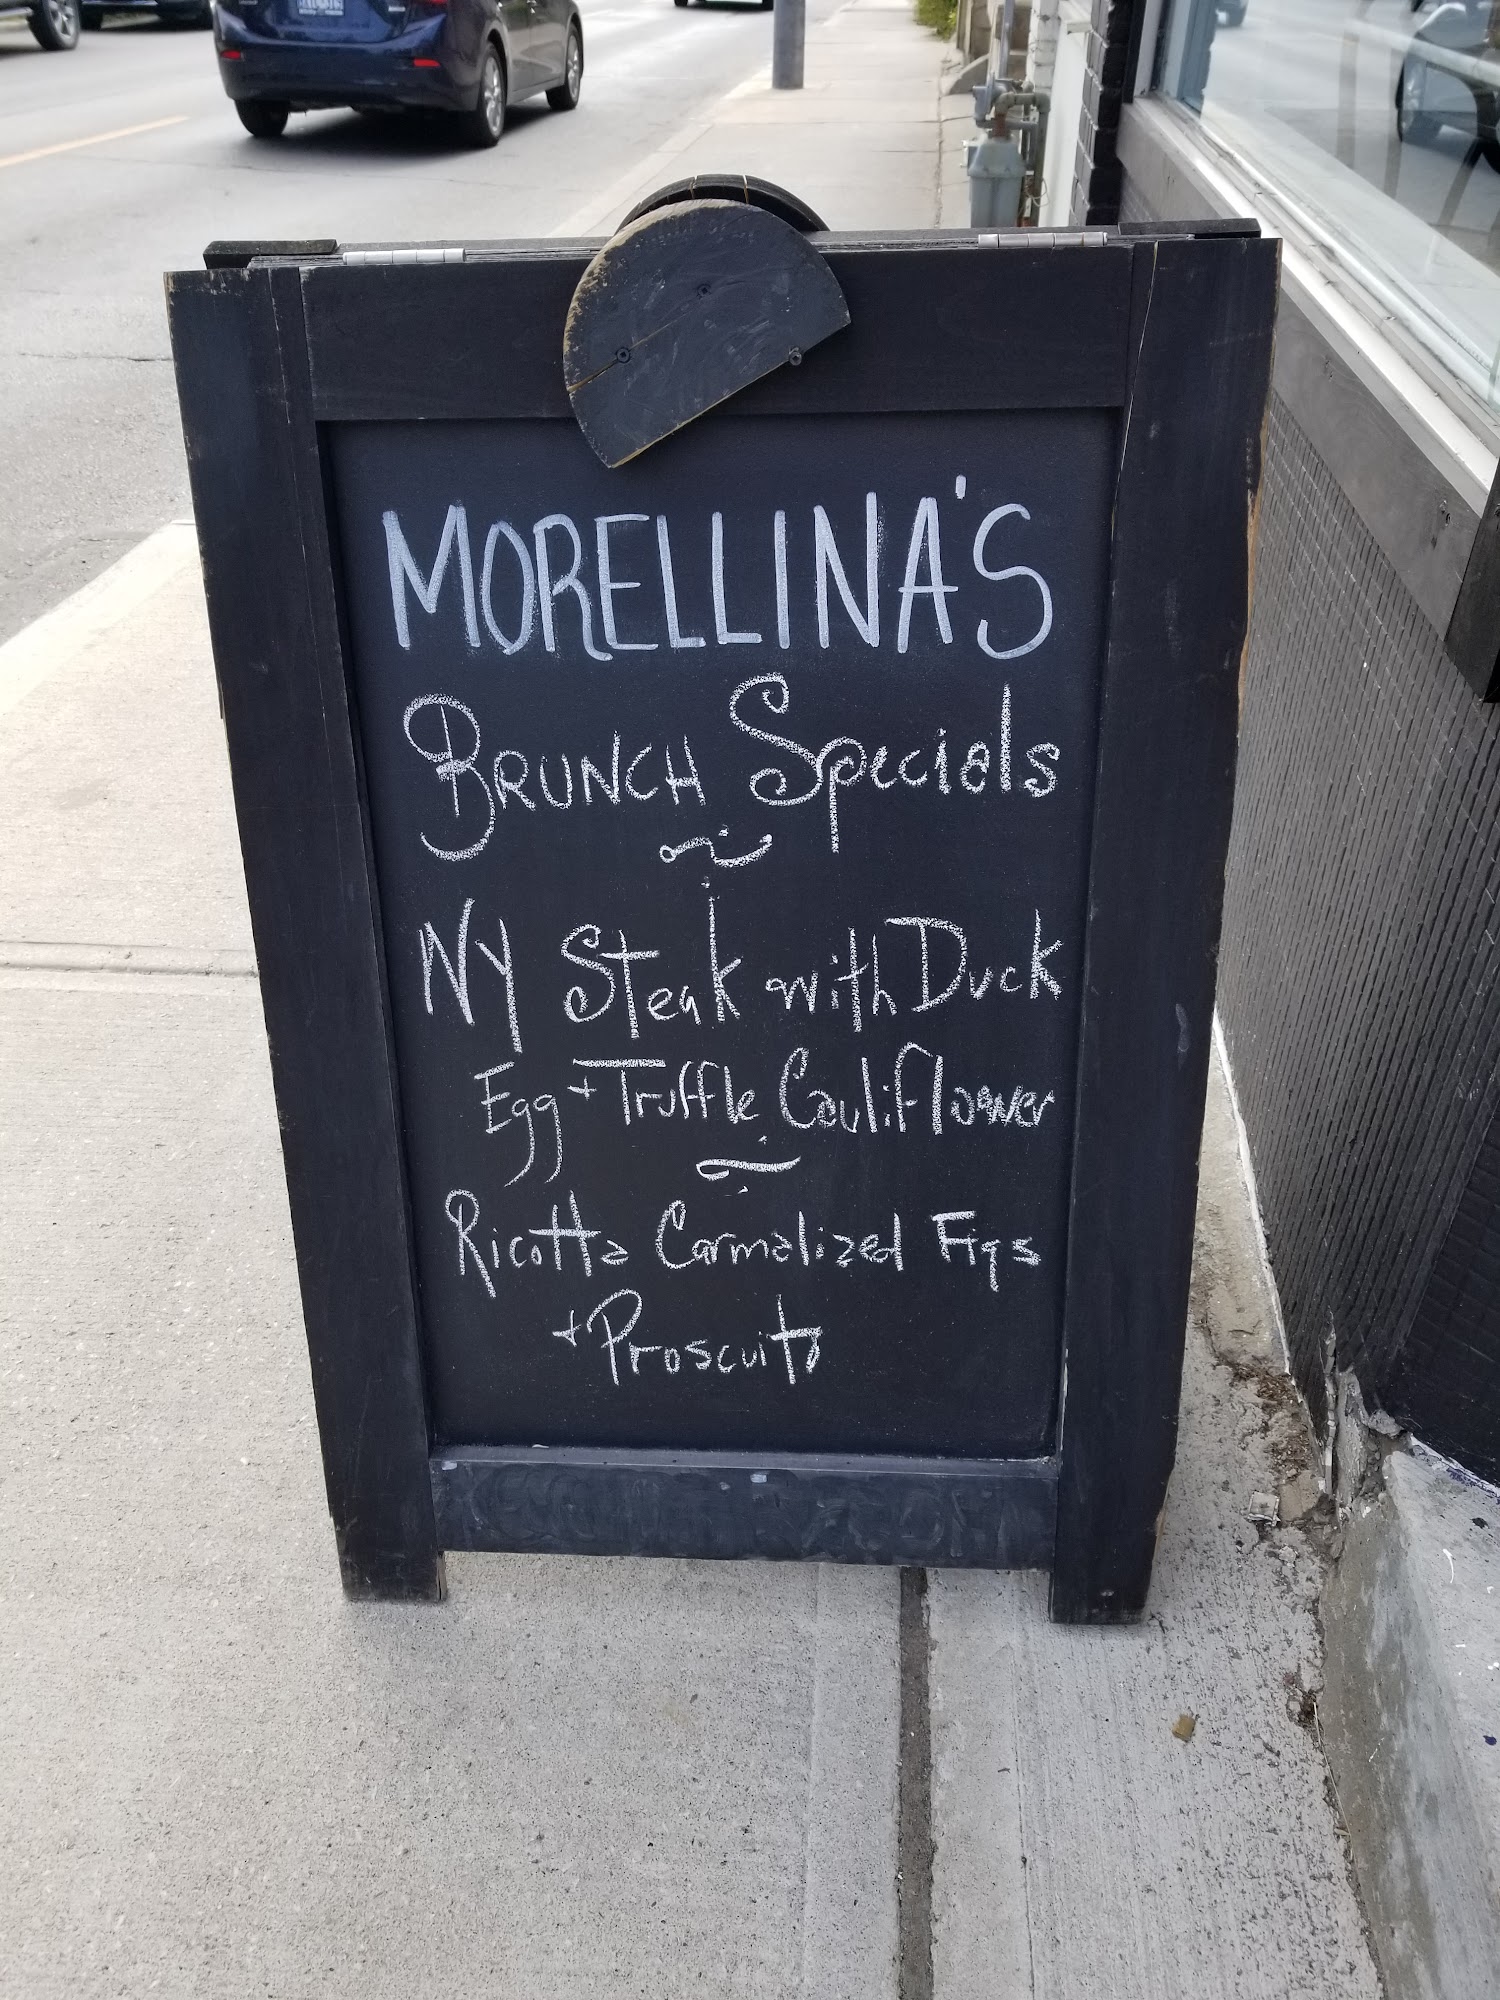 MORELLINA'S
BRUNCH Specials
NY Steak with Duck
Egg + Truffle Cauliflower
Ricotta Carmalized Figs
+ Proscuito